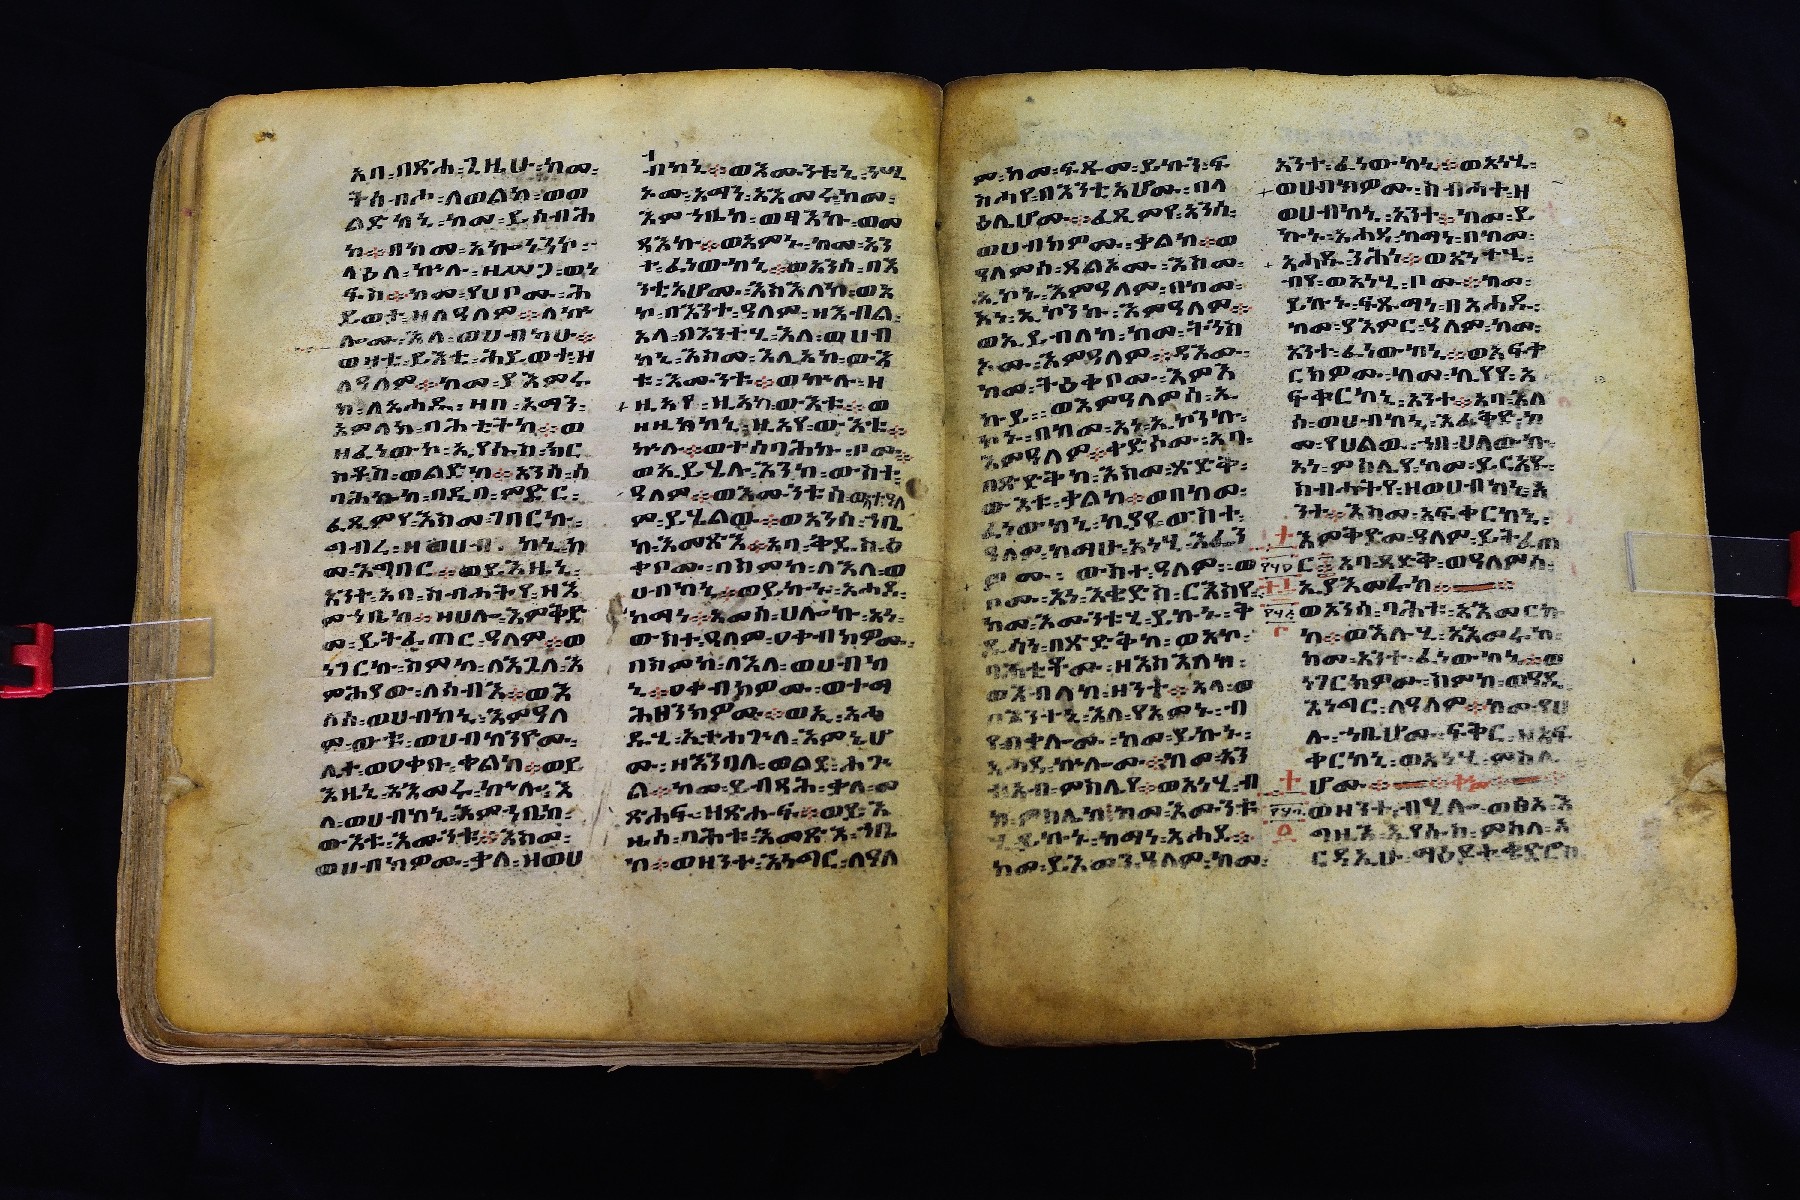 አባ፡በጽሐ፡ጊዜሁ፡ከመ፡
ትሰብሖ፡ለወልድከ፡ወወ
ልድከኒ፡ከመ፡ይሰብሕ
ከ፨በከመ፡አኰነንኮ፡
ላዕለ፡ኵሉ፡ዘሥጋ፡ወነ
ፍስ፨ከመ፡የሀቦሙ፡ሕ
ይወት፡ዘለዓለም፨ለኵ
ሎሙ፡እለ፡ወሀብከሁ፨
ወዛቲ፡ይእቲ፡ሕይወት፡ዘ
ለዓለም፨ከመ፡ያእምሩ
ከ፡ለአሐዱ፡ዘበ፡አማን፡
አምላክ፡ባሕቲትከ፨ወ
ዘፈነውኮ፡ኢየሱስ፡ክር
ስቶስ፡ወልድከ፨አንሰ፡ሰ
ባሕኩከ፡በዲበ፡ምድር፡
ፈጺምየ፡እከመ፡ገበርኩ፡
ግብረ፡ዘወሀብ፡ከኒ፡ከ
መ፡እግበር፨ወይእዜኒ፡
አንተ፡አባ፡ሰብሐትየ፡ዘእ
ምኀቤከ፡ዘሀሎ፡እምቅድ
መ፡ይትፈጠር፡ዓለም፨ወ
ነገርኩ፡ስምከ፡ለእጓለ፡እ
ምሕያው፡ለሰብእ፨ወእ
ለሰ፡ወሀብከኒ፡እምዓለ
ም፡ውቱ፡ወሀብከንዮሙ፡
ሊተ፡ወዐቀቡ፡ቃልከ፨ወይ
እዜኒ፡አእመሩ፡ከኵሉ፡እ
ለ፡ወሀብከኒ፡እምኀቤከ፡
ውእቱ፡እሙንቱ፨እስመ፡
ወሀብክዎሙ፡ቃለ፡ዘወሀ
ብከኒ፨ወእሙንቱኒ፡ነሢ
ኦሙ፡አማን፡አእመሩ፡ከመ፡
እምኀቤከ፡ወፃእኩ፡ወመ
ጻእኩ፨ወአምኑ፡ከመ፡አን
ተ፡ፈነውከኒ፨ወአንሰ፡በእ
ንቲአሆሙ፡እስእለከ፡ወአ
ኮ፡በእንተ፡ዓለም፡ዘእብል፡
አላ፡በእንተሂ፡እለ፡ወሀብ
ከኒ፡እስመ፡እሊአከ፡ውእ
ቱ፡እሙንቱ፨ወኵሉ፡ዘ
ዚአየ፡ዚአከ፡ውእቱ፨ወ
ዘዚአከኒ፡ዚአየ፡ውእቱ፨
ኵሉ፨ወተሰባሕኩ፡ቦሙ፨
ወኢይሄሉ፡እንከ፡ውስተ፡
ዓለም፨ወእሙንቱሰ፡ውስተ፡ዓለ
ም፡ይሄልዉ፨ወአንሰ፡ኀቤ
ከ፡እመጽእ፨አባ፡ቅዱስ፡ዕ
ቀቦሙ፡በስምከ፡ለእለ፡ወ
ሀብከኒ፨ወይኩኑ፡አሐደ፡
ከማነ፨አመሰ፡ሀሎኩ፡አነ፡
ውስተ፡ዓለም፡ዐቀብክዎሙ፡
በስምከ፡ለእለ፡ወሀብከ
ኒ፨ዐቀብክዎሙ፡ወተማ
ሕፀንክዎሙ፨ወኢ፡አሐ
ዱሂ፡ኢተሐጐለ፡እምኔሆ
ሙ፡ዘእንበለ፡ወልደ፡ሕጕ
ል፨ከመ፡ይብጻሕ፡ቃለ፡መ
ጽሐፍ፡ዘጽሑፍ፨ወይእ
ዜሰ፡ባሕቱ፡እመጽእ፡ኀቤ
ከ፨ወዘንተ፡እነግር፡በዓለ
ም፡ከመ፡ፍጹመ፡ይኩን፡ፍ
ስሐየ፡በእንቲአሆሙ፡በላ
ዕሌሆሙ፨ፈጺምየ፡አንሰ፡
ወሀብክዎሙ፡ቃልከ፨ወ
ዓለምሰ፡ጸልኦሙ፡እስመ፡
ኢኮኑ፡እምዓለም፡በከመ፡
አነ፡ኢኮንኩ፡እምዓለም፨
ወኢይብለከ፡ከመ፡ትንስ
ኦሙ፡እምዓለም፨ዳእሙ፡
ከመ፡ትዕቀቦሙ፡እምእ
ኩይ፨ወእምዓለምሰ፡ኢ
ኮኑ፡በከመ፡አነ፡ኢኮንኩ፡
እምዓለም፨ቀድሶሙ፡አባ፡
በጽድቅከ፡እስመ፡ጽድቅ፡
ውእቱ፡ቃልከ፨ወበከመ፡
ፈነውከኒ፡ኪያየ፡ውስተ፡
ዓለም፡ከማሁ፡አነሂ፡እፌን
ዎሙ፡ውስተ፡ዓለም፨ወ
ቦሙ፡አነ፡እቄድስ፡ርእስየ
ከመ፡እሙንቱሂ፡ይኩኑ፡ቅ
ዱሳነ፡በጽድቅከ፡ወአኮ፡
ባሕቲቶሙ፡ዘእስእለከ፡
ወእብለከ፡ዘንተ፨አላ፡ወ
በእንተኒ፡እለ፡የአምኑ፡ብ
የ፡በቃሎሙ፡ከመ፡ይኩኑ፡
አሐደ፡ኵሎሙ፨ከመ፡አን
ተ፡አብ፡ምስሌየ፨ወአነሂ፡ብ
ከ፡ምስሌከ፡ከመ፡እሙንቱ
ሂ፡ይኩኑ፡ከማነ፡አሐደ፨
ከመ፡ይእመን፡ዓለም፡ከመ፡
አንተ፡ፈነውከኒ፨ወአነሂ፡
ወሀብክዎሙ፡ስብሐተ፡ዘ
ወሀብከኒ፡አንተ፨ከመ፡ይ
ኩኑ፡አሐደ፡ከማነ፡በከመ፡
አሐዱ፡ንሕነ፨ወአንተሂ፡
ብየ፡ወአነሂ፡ቦሙ፨ከመ፡
ይኩኑ፡ፍጹማነ፡በአሐዱ፡
ከመ፡ያእምር፡ዓለም፡ከመ፡
አንተ፡ፈነውከኒ፨ወአፍቅ
ርክዎሙ፡ከመ፡ኪያየ፡አ
ፍቀርከኒ፡አንተ፨አባ፡እለ
ሰ፡ወሀብከኒ፡እፈቅድ፡ከ
መ፡የሀልዉ፡ኀበ፡ሀለውኩ፡
አነ፡ምስሌየ፡ከመ፡ይርአዩ፡
ስብሐትየ፡ዘወሀብከኒ፡አ
ንተ፨እስመ፡አፍቀርከኒ፡
እምቅድመ፡ዓለም፡ይትፈጠ
ር፨አባ፡ጻድቅ፡ወዓለምሰ፡
ኢያእመረከ፨
ወአንሰ፡ባሕቱ፡አእመርኩ
ከ፨ወእሉሂ፡አእመሩከ፡
ከመ፡አንተ፡ፈነውከኒ፨ወ
ነገርክዎሙ፡ስምከ፡ወዓዲ
እነግር፡ለዓለም፨ከመ፡የሀ
ሉ፡ኀቤሆሙ፡ፍቅር፡ዘአፍ
ቀርከኒ፡ወአነሂ፡ምስሌ
ሆሙ፨
ወዘንተ፡ብሂሎ፡ወፅአ፡እ
ግዚእ፡ኢየሱስ፡ምስለ፡አ
ርዳኢሁ፡ማዕዶተ፡ቄድሮስ